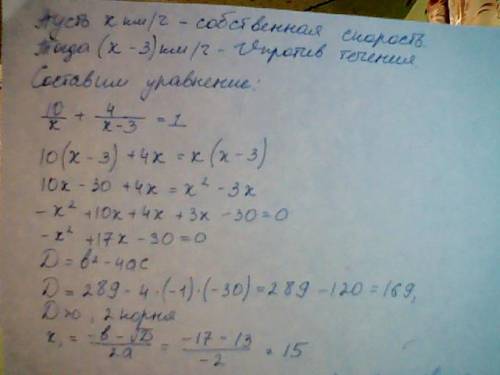 Пусть x км/ч - собственная скорость.
Тогда (x - 3) км/ч - V против течения.
Составим уравнение:
10/x + 4/(x-3) = 1
10(x - 3) + 4x = x(x - 3)
10x - 30 + 4x = x² - 3x
-x² + 10x + 4x + 3x - 30 = 0
-x² + 17x - 30 = 0
D = b² - 4ac
D = 289 - 4 · (-1) · (-30) = 289 - 120 = 169,
D>0, 2 корня
x₁ = (-b - √D)/2a = (-17 - 13)/-2 = 15